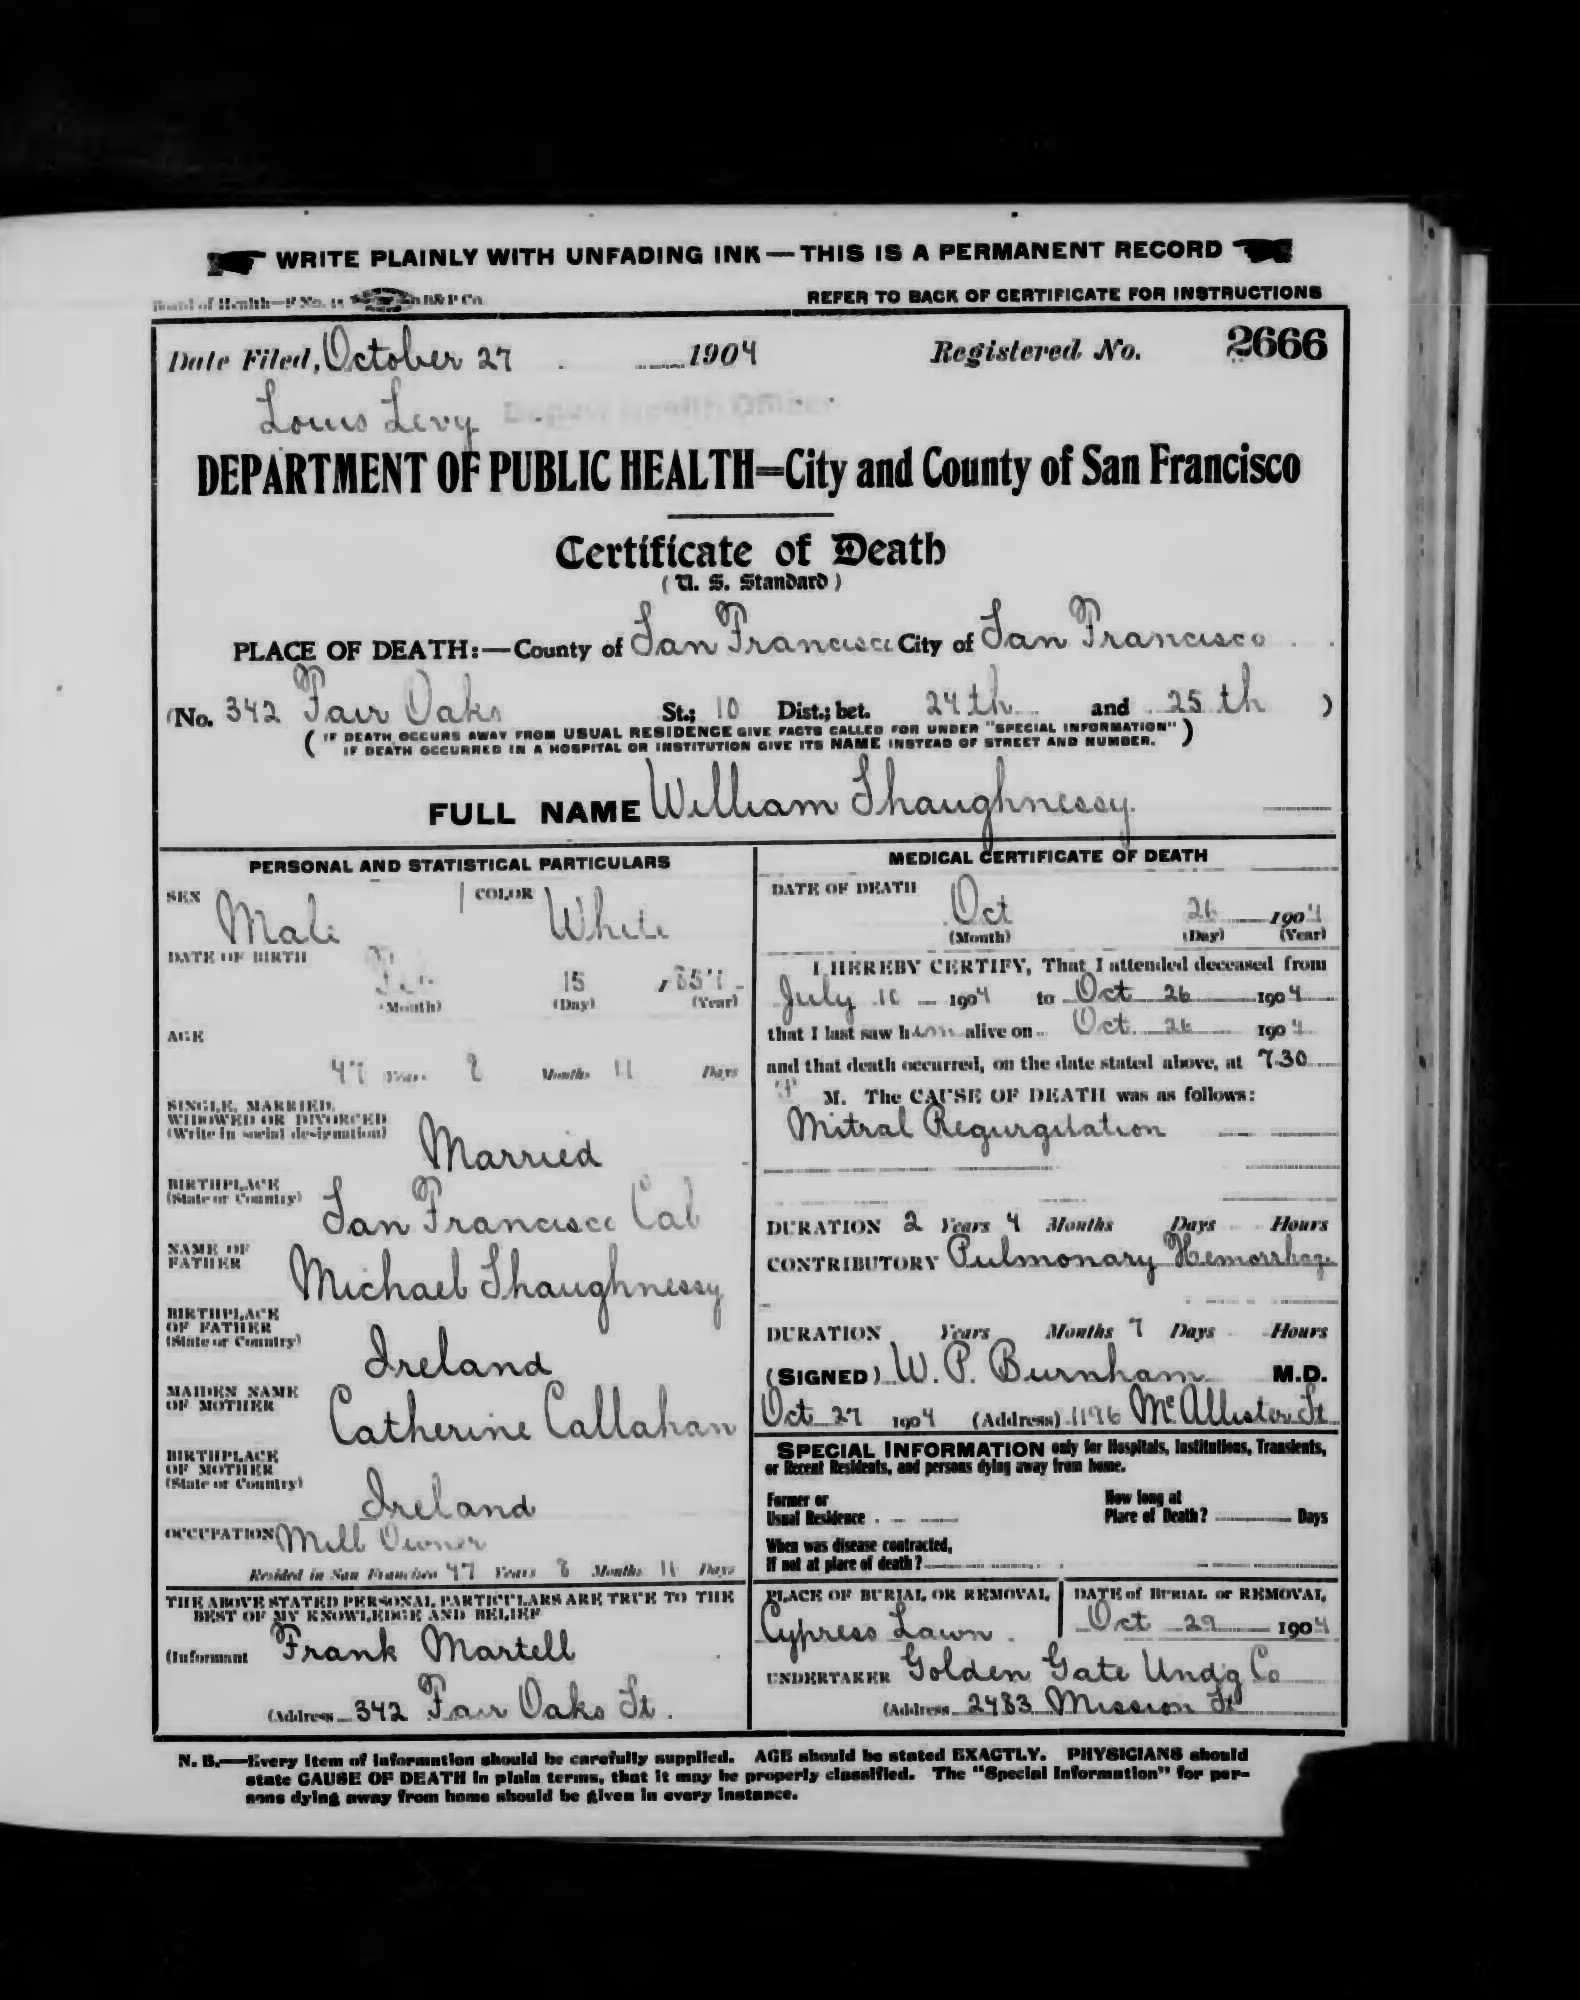 WRITE PLAINLY WITH UNFADING INK—THIS IS A PERMANENT RECORD
Board of Health—F No. 11 B&P Co.
REFER TO BACK OF CERTIFICATE FOR INSTRUCTIONS
Date Filed, October 27 1904 Registered No. 2666
Louis Levy Deputy Health Officer
DEPARTMENT OF PUBLIC HEALTH=City and County of San Francisco
Certificate of Death
(U. S. Standard)
PLACE OF DEATH:—County of San Francisco City of San Francisco
(No. 342 Fair Oaks St.; 10 Dist.; bet. 24th and 25th )
(IF DEATH OCCURS AWAY FROM USUAL RESIDENCE GIVE FACTS CALLED FOR UNDER "SPECIAL INFORMATION")
IF DEATH OCCURRED IN A HOSPITAL OR INSTITUTION GIVE ITS NAME INSTEAD OF STREET AND NUMBER.
FULL NAME William Shaughnessy
PERSONAL AND STATISTICAL PARTICULARS
SEX Male COLOR White
DATE OF BIRTH
15
(Month) (Day) (Year)
AGE
47 Years 8 Months 11 Days
SINGLE, MARRIED,
WIDOWED OR DIVORCED
(Write in social designation)
Married
BIRTHPLACE
(State or Country)
San Francisco Cal
NAME OF
FATHER
Michael Shaughnessy
BIRTHPLACE
OF FATHER
(State or Country)
Ireland
MAIDEN NAME
OF MOTHER
Catherine Callahan
BIRTHPLACE
OF MOTHER
(State or Country)
Ireland
OCCUPATION Mill Owner
Resided in San Francisco 47 Years 8 Months 11 Days
THE ABOVE STATED PERSONAL PARTICULARS ARE TRUE TO THE
BEST OF MY KNOWLEDGE AND BELIEF
(Informant Frank Martell
(Address 342 Fair Oaks St.
MEDICAL CERTIFICATE OF DEATH
DATE OF DEATH
Oct 26 1904
(Month) (Day) (Year)
I HEREBY CERTIFY, That I attended deceased from
July 10 1904 to Oct 26 1904
that I last saw him alive on Oct. 26 1904
and that death occurred, on the date stated above, at 7.30
P M. The CAUSE OF DEATH was as follows:
Mitral Regurgitation
DURATION 2 Years 4 Months Days Hours
CONTRIBUTORY Pulmonary Hemorrhage
DURATION Years Months 7 Days Hours
(SIGNED) W. P. Burnham M.D.
Oct 27 1904 (Address) 1196 McAllister St
SPECIAL INFORMATION only for Hospitals, Institutions, Transients,
or Recent Residents, and persons dying away from home.
Former or
Usual Residence
How long at
Place of Death? Days
When was disease contracted,
If not at place of death?
PLACE OF BURIAL OR REMOVAL
Cypress Lawn
DATE of BURIAL or REMOVAL
Oct 29 1904
UNDERTAKER Golden Gate Undg Co
(Address 2483 Mission St
N. B.—Every item of information should be carefully supplied. AGE should be stated EXACTLY. PHYSICIANS should
state CAUSE OF DEATH in plain terms, that it may be properly classified. The "Special Information" for per-
sons dying away from home should be given in every instance.